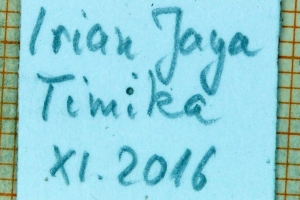 Irian Jaya
Timika
XI. 2016